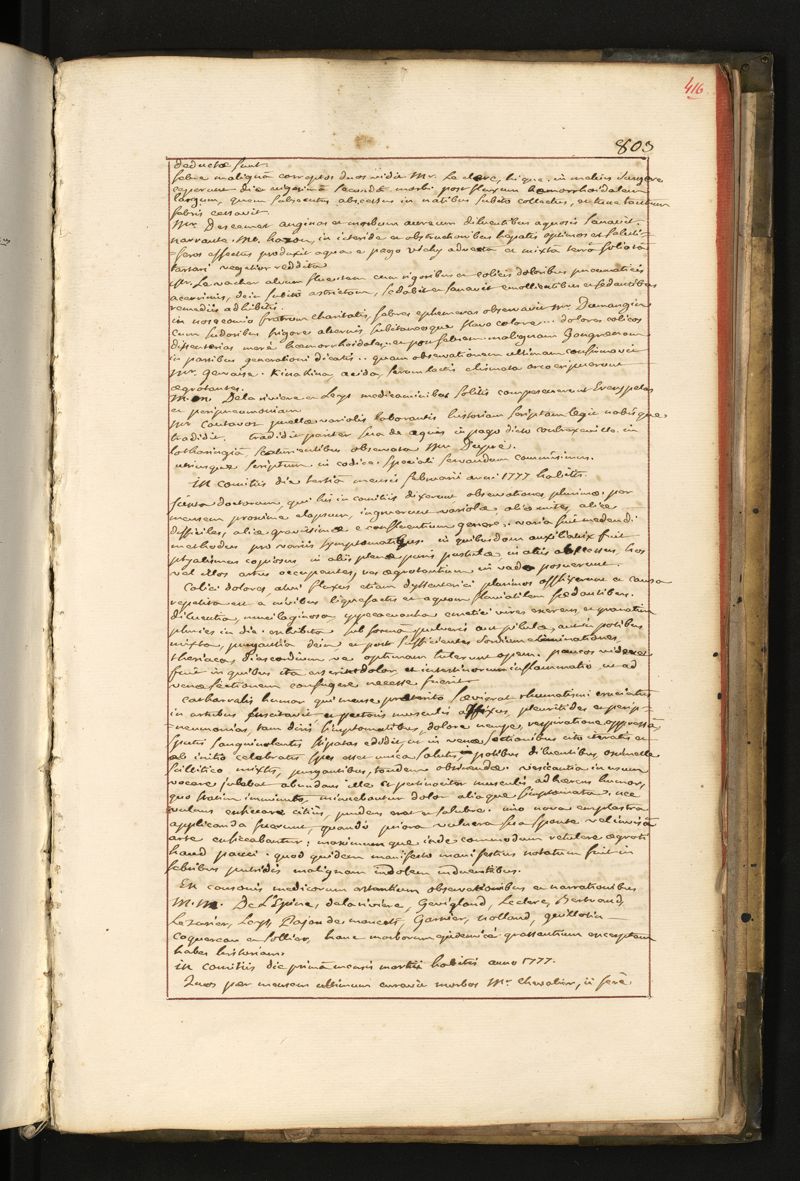 416
803
deductæ sunt.
febre malignâ correptos duos vidit Mr. Le clerc, hi que in melius surgere
cœperunt die vigesimâ secundâ morbi post fluxum hæmorrhoidalem
largum, quem subsecutus abscessus in natibus subito collectus, et tunc tantum
febris cessavit.
Mr. Descemet anginas et morbum aureum diluentibus aquosis sanavit.
narrante Mr. hazon, in icteride et obstructionibus hepatis optimos et saluti=
feros effectus produxit aqua e pago vichy advecta et mixta terrâ foliatâ
tartari vegetior reddita
Mr. Le vacher alvum fluentem cum rigoribus et colicis doloribus pneumaticis
acerrimis, dein subito astrictam, sedabit et sanavit emollientibus et sedantibus
remediis adhibitis.
in nosocomio fratrum charitatis, febres ephemeras observavit Mr. Dumangin
cum sudoribus frigore alternis subitaneoque flavo colore... dolores colicos
dissenterias merè hæmorrhoidales, et post febrem malignam gangrenam
in partibus generationi dicatis.. quam observationem ultimam confirmavit
Mr. Gervaise. Kina Kina, acida, serum lactis, clismata arcem
ægrotantes.
M.M. Delariviere et Lerys medicaminibus solitis compescuerunt Eresypelas
et peripneumoniam
Mr. Coutavoz puellæ variolis laborantis historiam scriptam legit nobisque
tradidit. tradidit pariter sua de aquis in pago dicto contrexeville in
lotharingiâ scaturientibus observata Mr. Dupré.
utriusque scriptum in codice speciali servandum commisimus.
in comitiis die tertiâ mensis februarii anni 1777 habitis.
Juxta doctorum, qui his in comitiis dixerunt observationes plurimæ, per
mensem proxime elapsum, ingruerunt variolæ, aliæ mites, aliæ
difficiles, aliæ gravissimæ e confluentium genere. varia fuit medendi
methodus pro variis symptomatibus. in quibusdam auxiliatrix fuit
ptyalismus copiosus in aliis plenæ puris pustulæ in aliis abscessus hos
vel illos artus occupantes, res ægrotantium in vado posuerunt.
Colici dolores alvi fluxus etiam dyssenterici plurimos afflixerunt et causa
repetita est a nivibus liquefactis et aquam fluviatilem fœdantibus.
diluentia, mucilaginosa, ypecacuanha emeticè vires exerens, et granatim
pluries in die exhibita sub formâ pulveris aut pilulæ, aut in potibus
mixta, purgantia dein et post sufficientes sordium eliminationes
theriaca, diascordium ve optimam tulerunt opem. paucos videre
fuit in quibus ita asserit dolor et intestinorum inflammatio ut ad
venæ sectionem confugere necesse fuerit.
Catharralis humor qui mense præterito sævierat rhumatismi cruciatus
in artubus suscitavit et pectoris musculis affixus pleuritides et perip=
=neumonias, tam diris symptomatibus, dolore nempe, respiratione oppressâ
sputis sanguinolentis stipatas edidit, ut in venæ sectionibus cito iteratis et
ab initio celebratis spes esset unica salutis, potibus diluentibus, oximelle
scillitico mixtis, purgantibus, tandem obtinendæ. vesicantia in usum
vocare jubebat abundans ille et pertinaciter musculis adhærens humor,
quo statim imminuto minuebantur dolor aliaque simptomata. nec
vulnus exsiccare citius, prudens erat et salubre. imo nova emplastra
applicanda fuerunt, quando priora vulnera sua sponte vel invitâ
arte exsiccabantur; maximumque inde commodum retulere ægroti
haud pauci. quod quidem manifesto manifestius notatum fuit in
febribus putridis malignam indolem induentibus.
Ex consonis medicorum astantium observationibus et narrationibus
M.M. De L'Epine, delariviere, Gevigland, Leclerc, Bertrand,
Lezurier, Lerys, Dajon de moncets, Garnier, nolland, guillotin
coquereau et sollier, hanc morborum epidemicè grassantium exceptam
habes historiam.
in comitiis die primâ mensis martii habitis anno 1777.
Quos per mensem ultimum curavit morbos Mr. chevalier, ii ferè